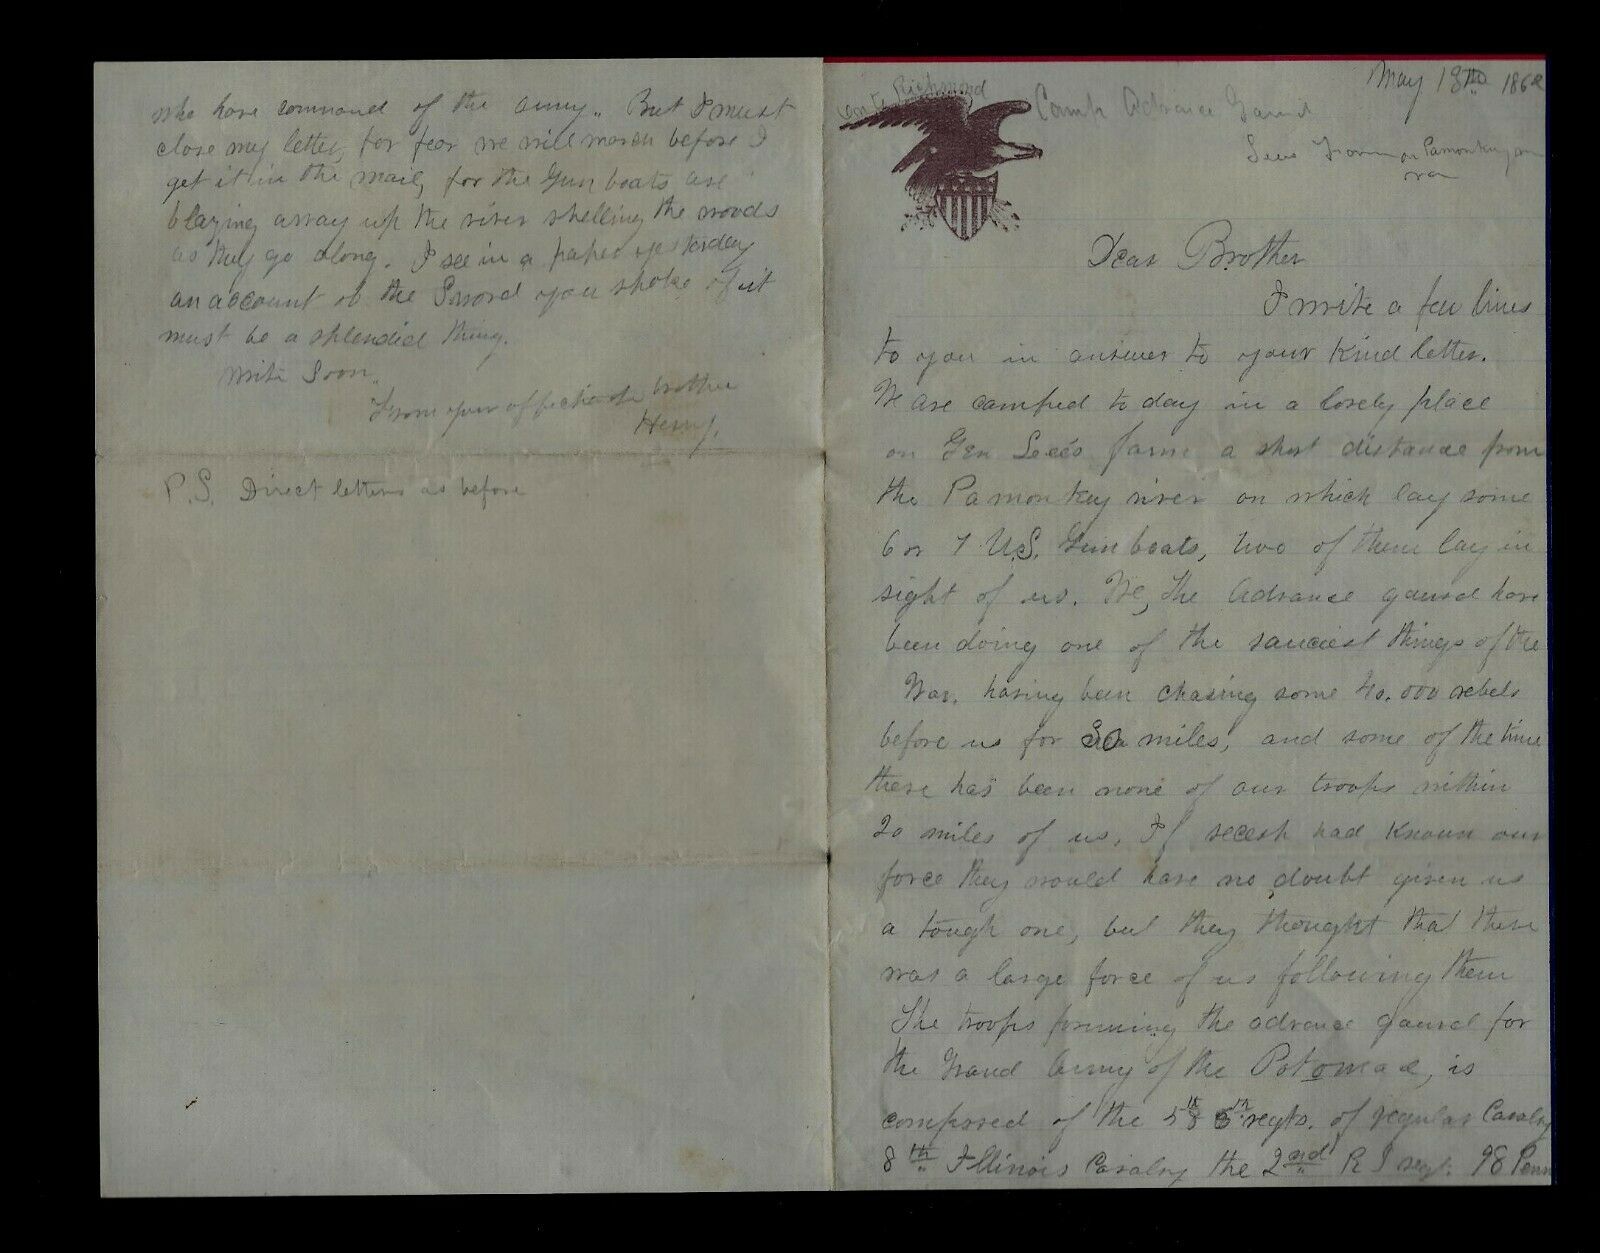 who have command of the army. But I must
close my letter, for fear we will march before I
get it in the mail, for the Gun boats are
blazing away up the river shelling the woods
as they go along. I see in a paper yesterday
an account of the Sword you spoke of it
must be a splendid thing.
Write Soon.
From your affectionate brother
Henry.
P.S. Direct letters as before
May 13th 1862
Richmond
Camp Advance Gaurd
Lees Farm on Pamonkey
Dear Brother
I write a few lines
to you in answer to your kind letter.
We are camped to day in a lovely place
on Gen Lee's farm a short distance from
the Pamonkey river on which lay some
6 or 7 U.S. Gun boats, two of them lay in
sight of us. We, the Advance gaurd have
been doing one of the sauciest things of the
War, having been chasing some 40.000 rebels
before us for 30 miles, and some of the time
there has been none of our troops within
20 miles of us. If secesh had known our
force they would have no doubt given us
a tough one, but they thought that there
was a large force of us following them
The troops forming the advance gaurd for
the Grand Army of the Potomac, is
composed of the 5th & 6th regts. of regular Cavalry
8th Illinois Cavalry the 2nd R I regt. 98 Penn